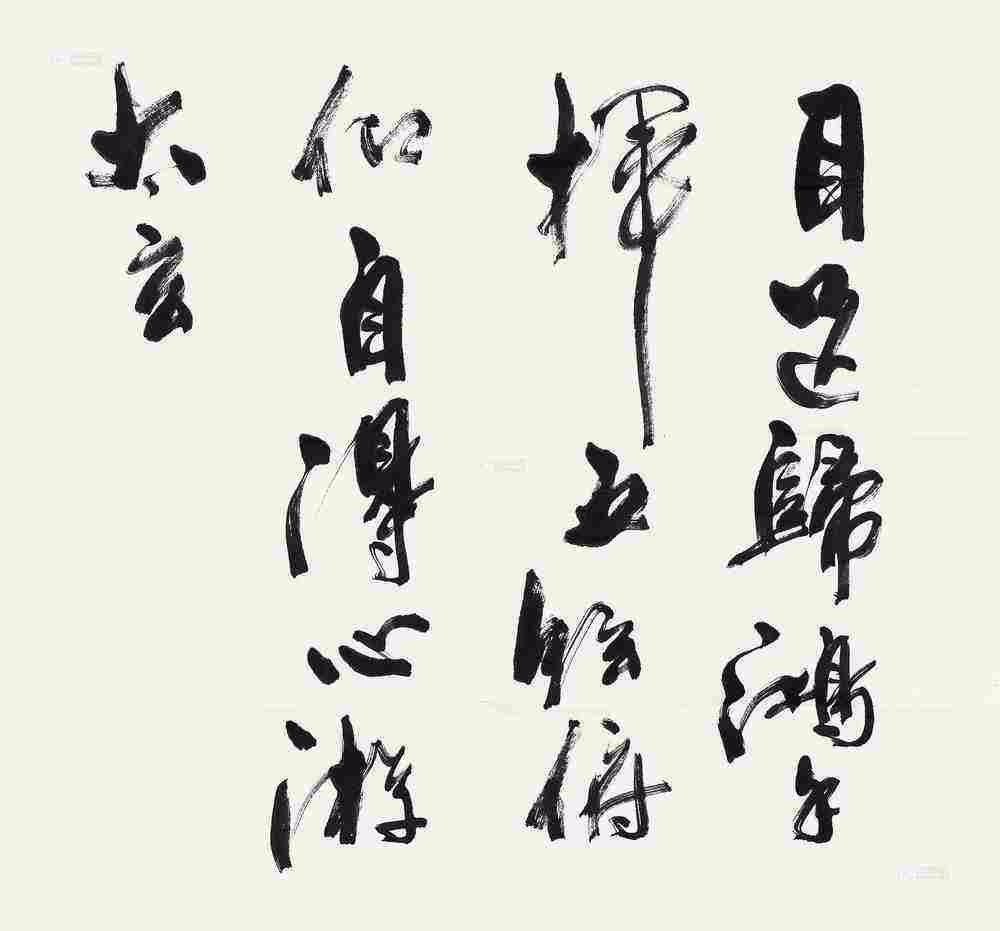 目送歸鴻手
揮五絃俯
仰自得心游
太玄